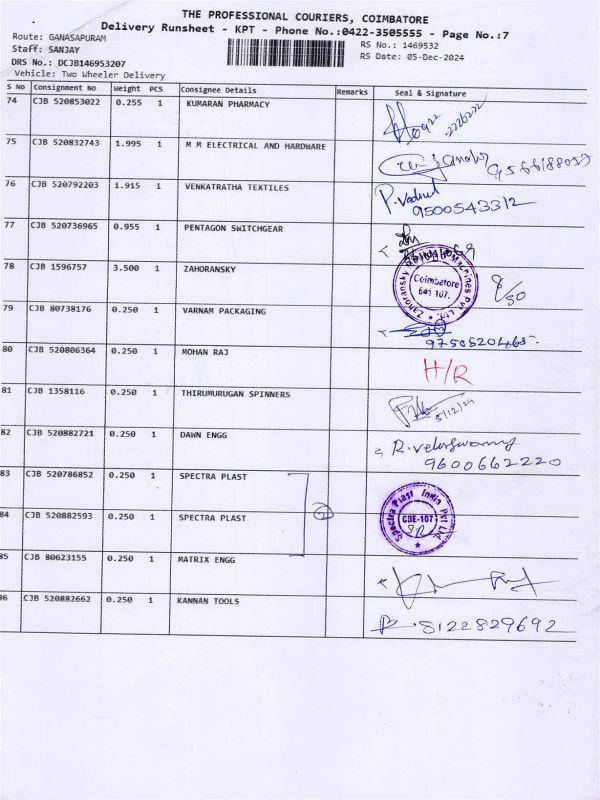 THE PROFESSIONAL COURIERS, COIMBATORE
Delivery Runsheet - KPT - Phone No.:0422-3505555 - Page No.:7
Route: GANASAPURAM
RS No.: 1469532
Staff: SANJAY
RS Date: 05-Dec-2024
DRS No.: DCJB146953207
Vehicle: Two Wheeler Delivery
S No Consignment No Weight PCS Consignee Details Remarks Seal & Signature
74 CJB 520853022 0.255 1 KUMARAN PHARMACY
75 CJB 520832743 1.995 1 M M ELECTRICAL AND HARDWARE
76 CJB 520792203 1.915 1 VENKATRATHA TEXTILES
9500543312
77 CJB 520736965 0.955 1 PENTAGON SWITCHGEAR
78 CJB 1596757 3.500 1 ZAHORANSKY
Zahoransky Machines Pvt. Ltd.
Coimbatore
641 107.
79 CJB 80738176 0.250 1 VARNAM PACKAGING
80 CJB 520806364 0.250 1 MOHAN RAJ H/R
81 CJB 1358116 0.250 1 THIRUMURUGAN SPINNERS
5/12/24
82 CJB 520882721 0.250 1 DAWN ENGG
9600662220
83 CJB 520786852 0.250 1 SPECTRA PLAST
Spectra Plast India Pvt Ltd.
CBE-107
84 CJB 520882593 0.250 1 SPECTRA PLAST
85 CJB 80623155 0.250 1 MATRIX ENGG
86 CJB 520882662 0.250 1 KANNAN TOOLS
8122829692